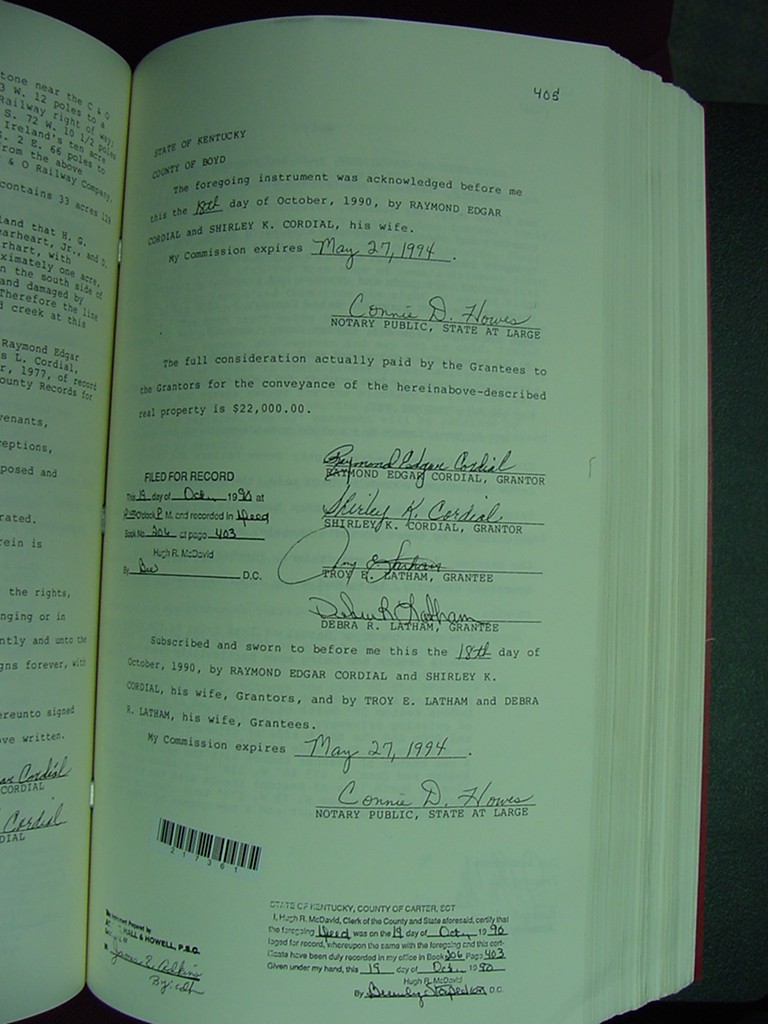 tone near the C & O
3 W. 12 poles to a
Railway right of way;
S. 72 W. 10 1/2 poles
Ireland's ten acre
. 2 E. 66 poles to
from the above
& O Railway Company,
contains 33 acres 129
land that H. G.
earheart, Jr., and O.
rhart, with
ximately one acre,
n the south side of
and damaged by
Therefore the line
d creek at this
Raymond Edgar
s L. Cordial,
r, 1977, of record
ounty Records for
venants,
eptions,
posed and
rated.
rein is
the rights,
nging or in
ntly and unto the
gns forever, with
ereunto signed
ove written.
ar Cordial
CORDIAL
Cordial
DIAL
405
STATE OF KENTUCKY
COUNTY OF BOYD
The foregoing instrument was acknowledged before me
this the 18th day of October, 1990, by RAYMOND EDGAR
CORDIAL and SHIRLEY K. CORDIAL, his wife.
My Commission expires May 27, 1994.
Connie D. Howes
NOTARY PUBLIC, STATE AT LARGE
The full consideration actually paid by the Grantees to
the Grantors for the conveyance of the hereinabove-described
real property is $22,000.00.
Raymond Edgar Cordial
RAYMOND EDGAR CORDIAL, GRANTOR
Shirley K. Cordial
SHIRLEY K. CORDIAL, GRANTOR
Troy E. Latham
TROY E. LATHAM, GRANTEE
Debra R Latham
DEBRA R. LATHAM, GRANTEE
FILED FOR RECORD
This 19 day of Oct. 1990 at
O'clock P. M. and recorded in Deed
Book No. 206 at page 403
Hugh R. McDavid
By D.C.
Subscribed and sworn to before me this the 18th day of
October, 1990, by RAYMOND EDGAR CORDIAL and SHIRLEY K.
CORDIAL, his wife, Grantors, and by TROY E. LATHAM and DEBRA
R. LATHAM, his wife, Grantees.
My Commission expires May 27, 1994.
Connie D. Howes
NOTARY PUBLIC, STATE AT LARGE
217361
Instrument Prepared by
HALL & HOWELL, P.S.C.
James E. Adkins
By: cdh
STATE OF KENTUCKY, COUNTY OF CARTER, SCT
I, Hugh R. McDavid, Clerk of the County and State aforesaid, certify that
the foregoing Deed was on the 19 day of Oct. 1990
lodged for record, whereupon the same with the foregoing and this cert-
ificate have been duly recorded in my office in Book 206 Page 403
Given under my hand, this 19 day of Oct. 1990
Hugh R. McDavid
By Beverly D.C.